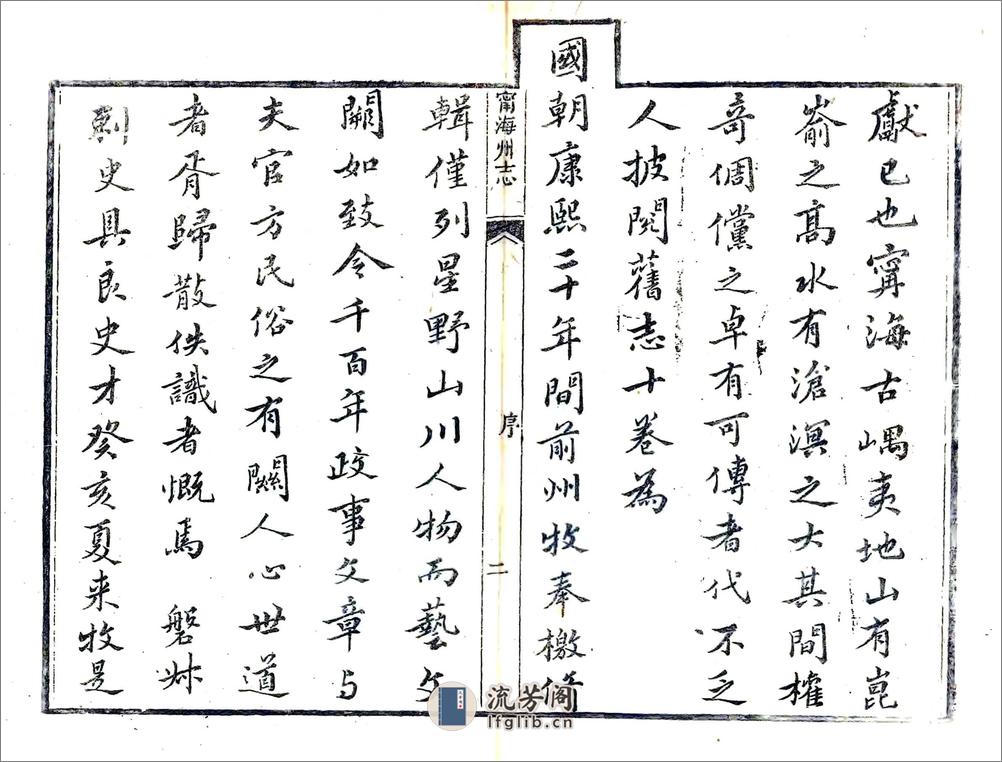 獻已也甯海古嵎夷地山有崑
崳之高水有滄溟之大其間權
奇倜儻之卓有可傳者代不乏
人披閱舊志十卷為
國朝康熙二十年間前州牧奉檄
甯海州志
序
二
輯僅列星野山川人物而藝文
闕如致令千百年政事文章与
夫官方民俗之有關人心世道
者胥歸散佚識者慨焉 磐
史具良史才癸亥夏来牧是
流芳阁
lfglib.cn